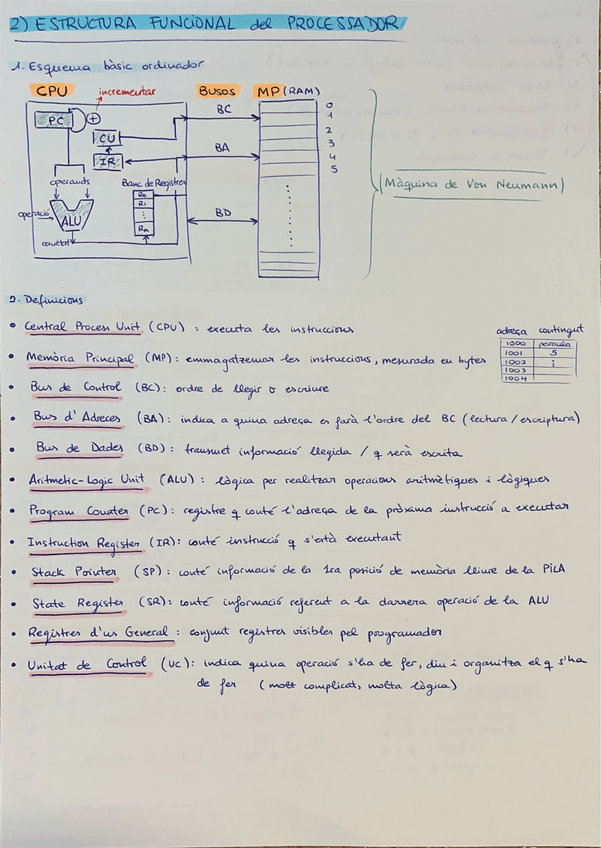 2) ESTRUCTURA FUNCIONAL del PROCESSADOR
1. Esquema bàsic ordinador
CPU
incrementar
BUSOS
MP (RAM)
PC
+
CU
IR
operands
operació
ALU
resultat
Banc de Registres
R0
R1
⋮
Rn
BC
BA
BD
0
1
2
3
4
5
(Màquina de Von Neumann)
2. Definicions
• Central Process Unit (CPU) : executa les instruccions
• Memòria Principal (MP) : emmagatzemar les instruccions, mesurada en bytes
adreça contingut
1000 paraula
1001 5
1002 i
1003
1004
• Bus de Control (BC) : ordre de llegir o escriure
• Bus d'Adreces (BA) : indica a quina adreça es farà l'ordre del BC (lectura / escriptura)
• Bus de Dades (BD) : transmet informació llegida / q serà escrita
• Aritmetic-Logic Unit (ALU) : lògica per realitzar operacions aritmètiques i lògiques
• Program Counter (PC) : registre q conté l'adreça de la pròxima instrucció a executar
• Instruction Register (IR) : conté instrucció q s'està executant
• Stack Pointer (SP) : conté informació de la 1ra posició de memòria lliure de la PILA
• State Register (SR) : conté informació referent a la darrera operació de la ALU
• Registres d'us General : conjunt registres visibles pel programador
• Unitat de Control (UC) : indica quina operació s'ha de fer, diu i organitza el q s'ha
de fer (molt complicat, molta lògica)